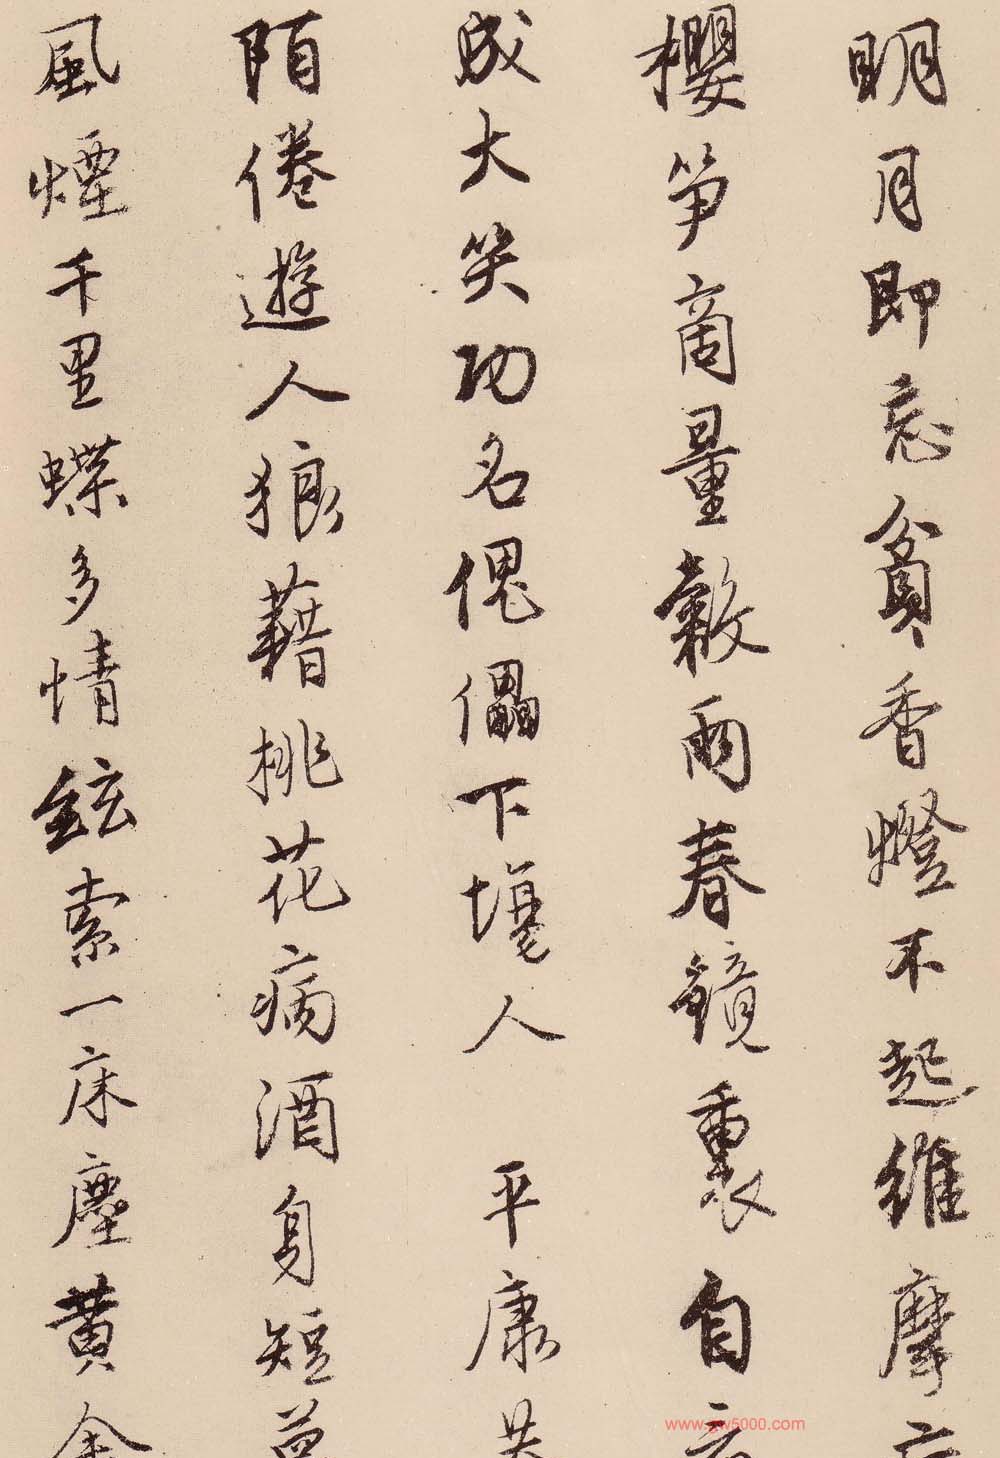 明月即忘貧香燈不起維摩
櫻笋商量穀雨春鏡裏自
成大笑功名傀儡下場人　平康
陌倦遊人狼藉桃花病酒身短
風煙千里蝶多情絃索一床塵黃金
www.zw5000.com